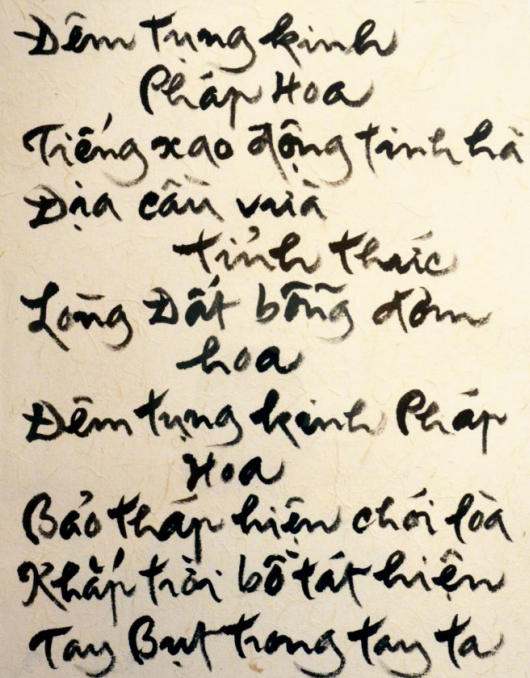 Đêm tụng kinh
Pháp Hoa
Tiếng xao động tinh hà
Địa cầu vừa
tỉnh thức
Lòng Đất bỗng đơm
hoa
Đêm tụng kinh Pháp
Hoa
Bảo tháp hiện chói lòa
Khắp trời bồ tát hiện
Tay Bụt trong tay ta